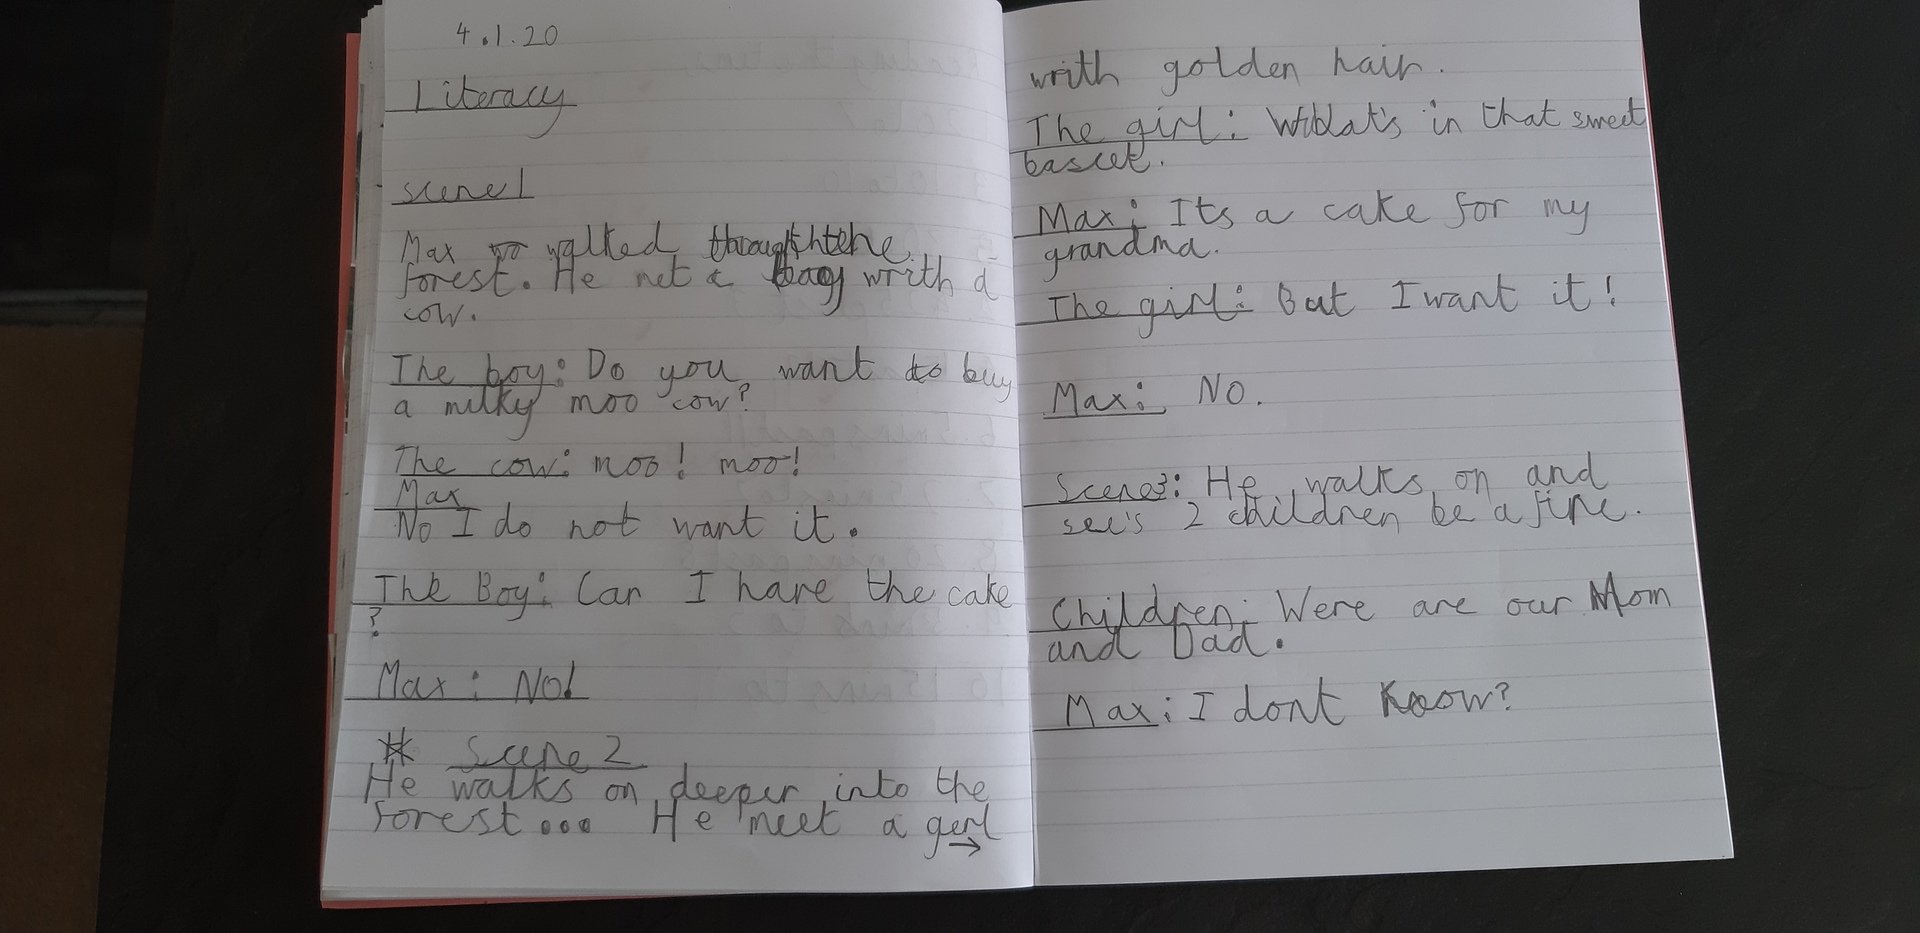 4.1.20
Literacy
scene1
Max wo walked through the
forest. He met a boy writh a
cow.
The boy: Do you want to buy
a milky moo cow?
The cow: moo! moo!
Max
No I do not want it.
The Boy: Can I have the cake
?
Max: No!
Scene 2
He walks on deeper into the
forest... He meet a gerl
→
writh golden hair.
The girl: What's in that sweet
bascet.
Max: Its a cake for my
grandma.
The girl: But I want it!
Max: No.
Scene3: He walks on and
see's 2 children be a fire.
Children: Were are our Mom
and Dad.
Max: I dont know?